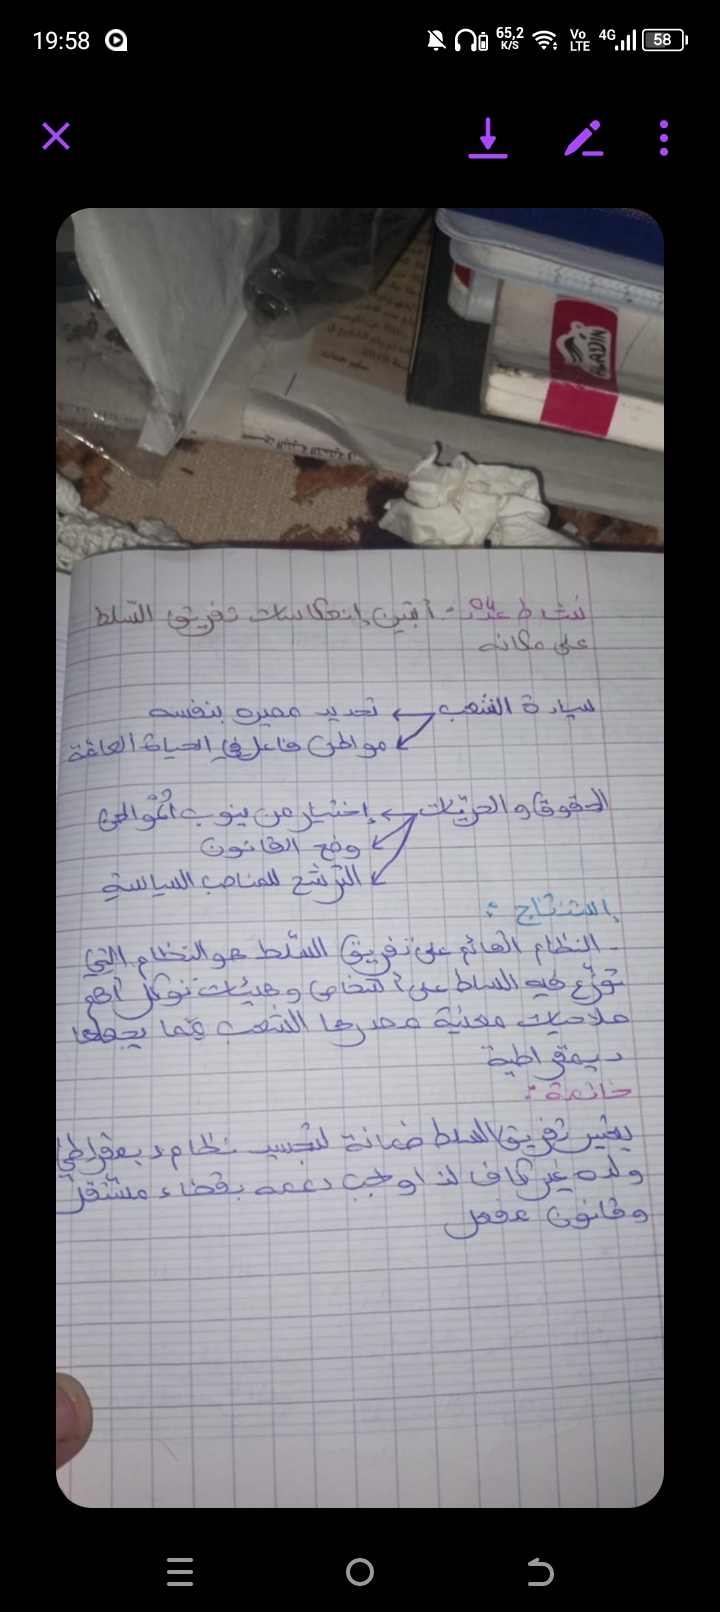 19:58
65,2 K/S
Vo LTE
4G
58
ALADIN
نشاط عدد 04: - أتبين إنعكاسات تفريق السّلط
على مكانه
سيادة الشعب ← تحديد مصيره بنفسه
مواطن فاعل في الحياة العامّة
الحقوق والحريّات ← إختيار من ينوب المُواطن
وضع القانون
الترشح للمناصب السياسية
إستنتاج :
- النظام القائم على تفريق السّلط هو النظام التي
توزّع فيه السلط على أشخاص وهيئات توكل لهم
صلاحيات معنية مصدرها الشعب ممّا يجعلها
ديمقراطية
خاتمة :
يعتبر تفريق السلط ضمانة لتجسيد نظام ديمقراطي
ولكنه غير كاف لذا وجب دعمه بقضاء مستقل
وقانون